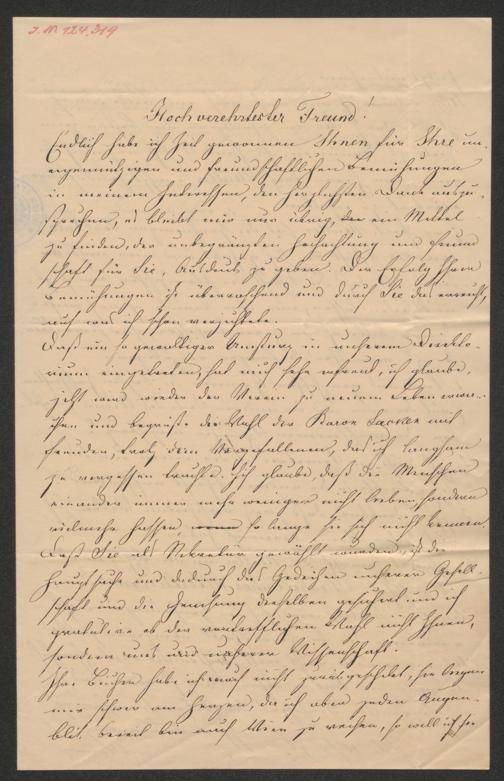 J. N 124.319
Hochverehrtester Freund!
Endlich habe ich Zeit gewonnen Ihnen für Ihre un-
eigennützigen und freundschaftlichen Bemühungen
in meinem Interesse, den herzlichsten Dank auszu-
sprechen, es bleibt mir nur übrig, ein Mittel
zu finden, der unbegränzten Hochachtung und Freund
schaft für Sie, Ausdruck zu geben. Der Erfolg Ihrer
Bemühungen ist überraschend und durch Sie das erreicht,
auf was ich schon verzichtete.
Daß ein so gewaltiger Umsturz in unserem Direkto-
rium eingetreten, hat mich sehr erfreut, ich glaube,
jetzt wird wieder der Verein zu neuem Leben erwa-
chen und begrüße die Wahl des Baron Sacken mit
Freuden, trotz dem Vorgefallenen, das ich langsam
zu vergessen suche. Ich glaube, daß die Menschen
einander immer mehr weniger nicht lieben, sondern
vielmehr hassen, so lange sie sich nicht kennen.
Daß Sie als Sekretär gewählt wurden, ist die
Hauptsache und dadurch das Gedeihen unserer Gesell-
schaft und die derselben gesichert und ich
gratulire ob der vortrefflichen Wahl nicht Ihnen,
sondern uns und unserer Wissenschaft.
Ihre Bücher habe ich noch nicht zurückgeschickt, sie liegen
mir schwer am Herzen, da ich aber jeden Augen-
blik bereit bin nach Wien zu reisen, so will ich sie